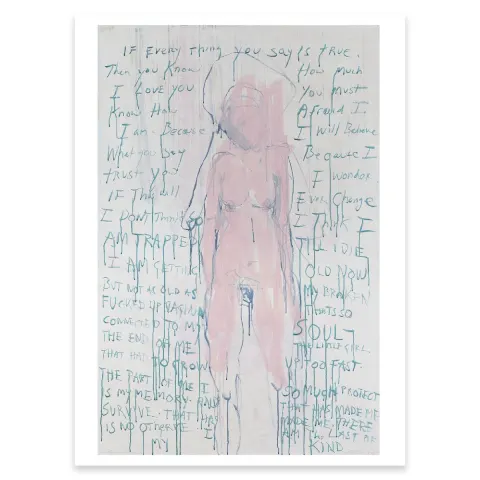 IF EVERY THING YOU SAY IS TRUE.
Then you Know How Much
I LOVE YOU YOU MUST
Know How Afraid I.
I am. Because I Will Believe
What you Say Because I
trust you I Wonder
IF This will Ever Change
I DONT THINK SO I THINK I
AM TRAPPED TILL I DIE
I AM GETTING OLD NOW
BUT NOT AS OLD AS MY BROKEN
FUCKED UP VAGINA THATS SO
CONNECTED TO MY SOUL
THE END OF ME THE LITTLE GIRL.
THAT HAD TO GROW UP TOO FAST.
THE PART OF ME I SO MUCH PROTECT
IS MY MEMORY. AND THAT HAS MADE ME
SURVIVE. THAT HAS MADE ME. THERE
IS NO OTHER I AM THE LAST OF
MY KIND